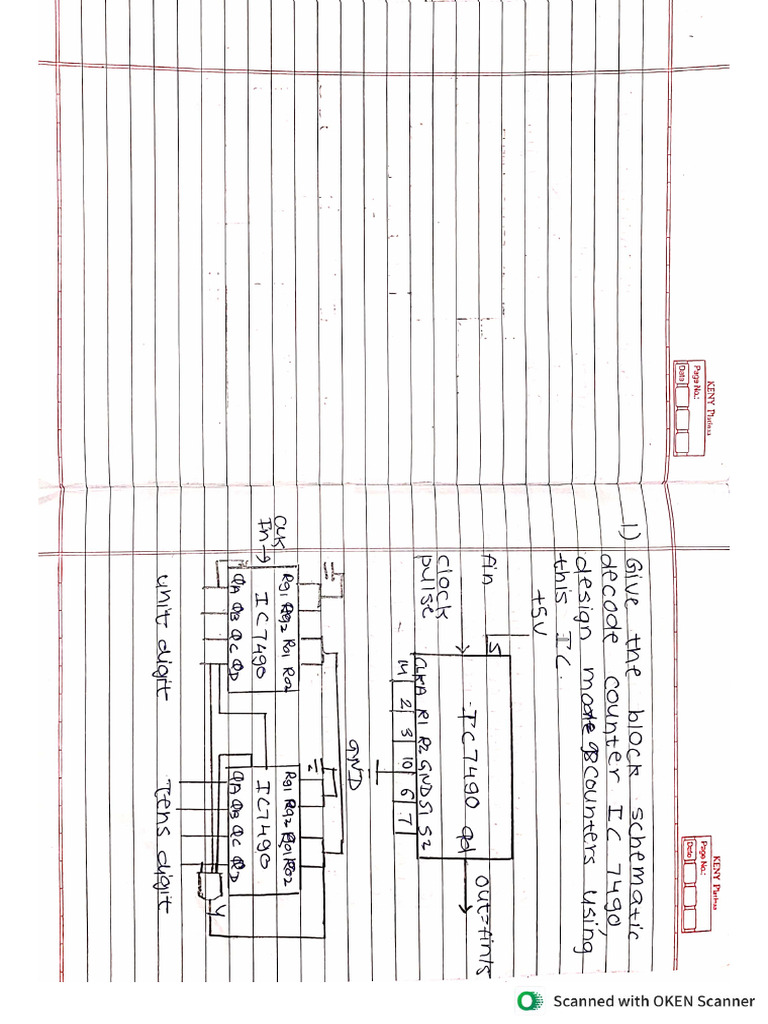 KENY Platinus
Page No.:
Date
KENY Platinus
Page No.:
Date
1) Give the block schematic
decode counter IC 7490,
design mode 98 counters using
this IC.
+5V
fin
clock
pulse
5
IC 7490
Qd
out=fin/5
CLKA R1 R2 GND S1 S2
14 2 3 10 6 7
GND
CLK
In→
R91 R92 R01 R02
IC 7490
QA QB QC QD
R91 R92 R01 R02
IC7490
QA QB QC QD
Y
unit digit
Tens digit
Scanned with OKEN Scanner